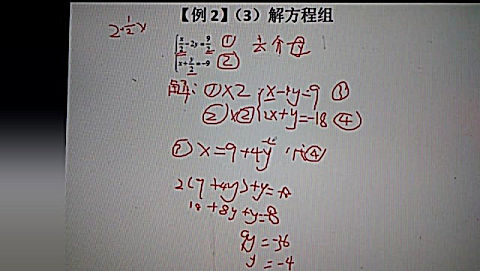 【例2】(3) 解方程组
2·½x
x/2 - 2y = 9/2 ① 去分母
x + y/2 = -9 ②
解: ①×2 x-4y=9 ③
②×2 2x+y=-18 ④
③ x=9+4y 代④
2(9+4y)+y=-18
18+8y+y=-18
9y=-36
y=-4